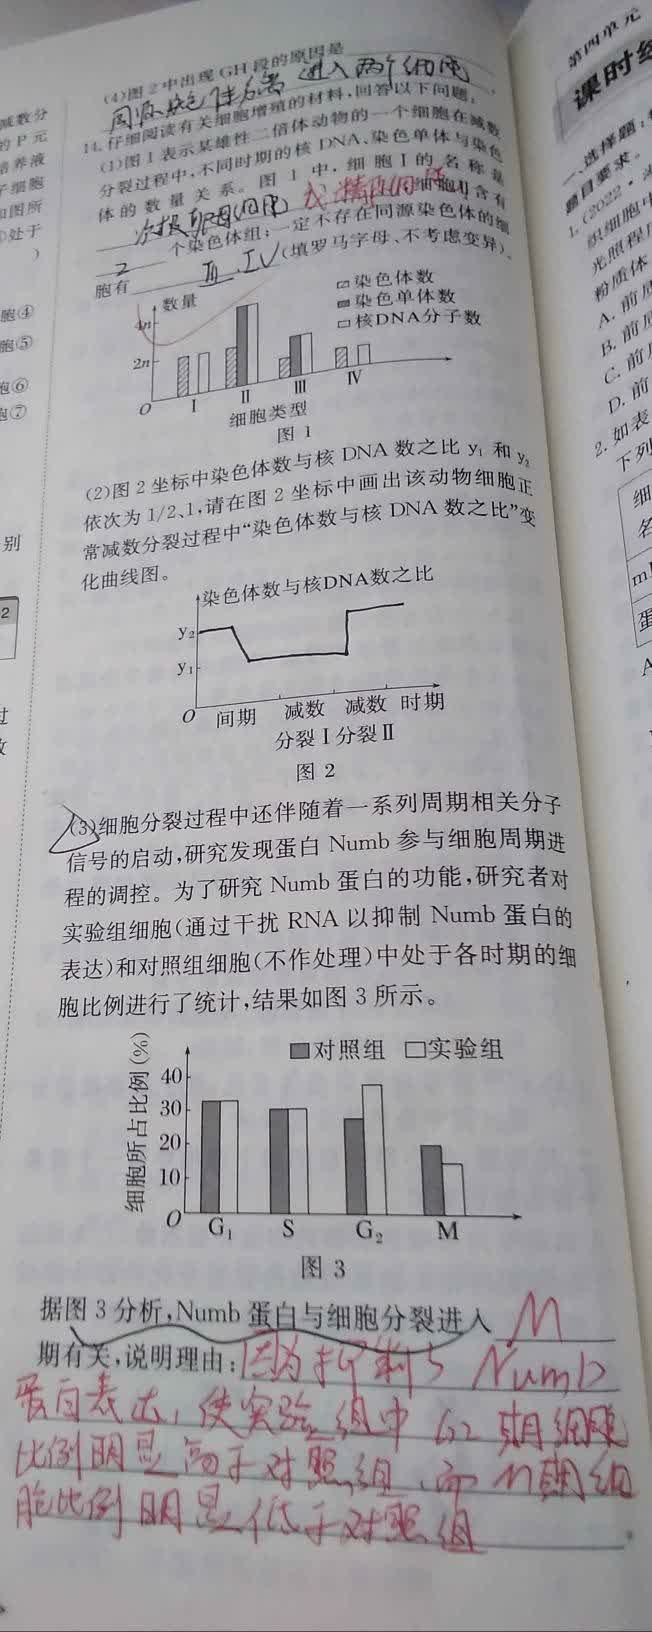 (4)图2中出现GH段的原因是
同源染色体分离 进入两个细胞
14.仔细阅读有关细胞增殖的材料,回答以下问题:
(1)图1表示某雄性二倍体动物的一个细胞在减数
分裂过程中,不同时期的核DNA、染色单体与染色
体的数量关系。图1中,细胞Ⅰ的名称是
次级精母细胞 或精原细胞
细胞Ⅱ含有
2 个染色体组;一定不存在同源染色体的细
胞有 Ⅲ、Ⅳ (填罗马字母、不考虑变异)。
数量
染色体数
染色单体数
核DNA分子数
4n
2n
O
Ⅰ Ⅱ Ⅲ Ⅳ
细胞类型
图1
(2)图2坐标中染色体数与核DNA数之比y₁和y₂
依次为1/2、1,请在图2坐标中画出该动物细胞正
常减数分裂过程中“染色体数与核DNA数之比”变
化曲线图。
染色体数与核DNA数之比
y₂
y₁
O 间期 减数 减数 时期
分裂Ⅰ 分裂Ⅱ
图2
(3)细胞分裂过程中还伴随着一系列周期相关分子
信号的启动,研究发现蛋白Numb参与细胞周期进
程的调控。为了研究Numb蛋白的功能,研究者对
实验组细胞(通过干扰RNA以抑制Numb蛋白的
表达)和对照组细胞(不作处理)中处于各时期的细
胞比例进行了统计,结果如图3所示。
细胞所占比例(%)
对照组 实验组
40
30
20
10
O
G₁ S G₂ M
图3
据图3分析,Numb蛋白与细胞分裂进入 M
期有关,说明理由:因为抑制 Numb
蛋白表达,使实验组中G2期细胞
比例明显高于对照组,而M期细
胞比例明显低于对照组
第四单元
课时练
一、选择题:
题目要求。
1.(2022·
织细胞中
光照程度
粉质体
A.前质
B.前质
C.前质
D.前
2.如表
下列
细
名
蛋
A
减数分
的P元
培养液
子细胞
如图所
①处于
)
胞④
胞⑤
胞⑥
胞⑦
别
2